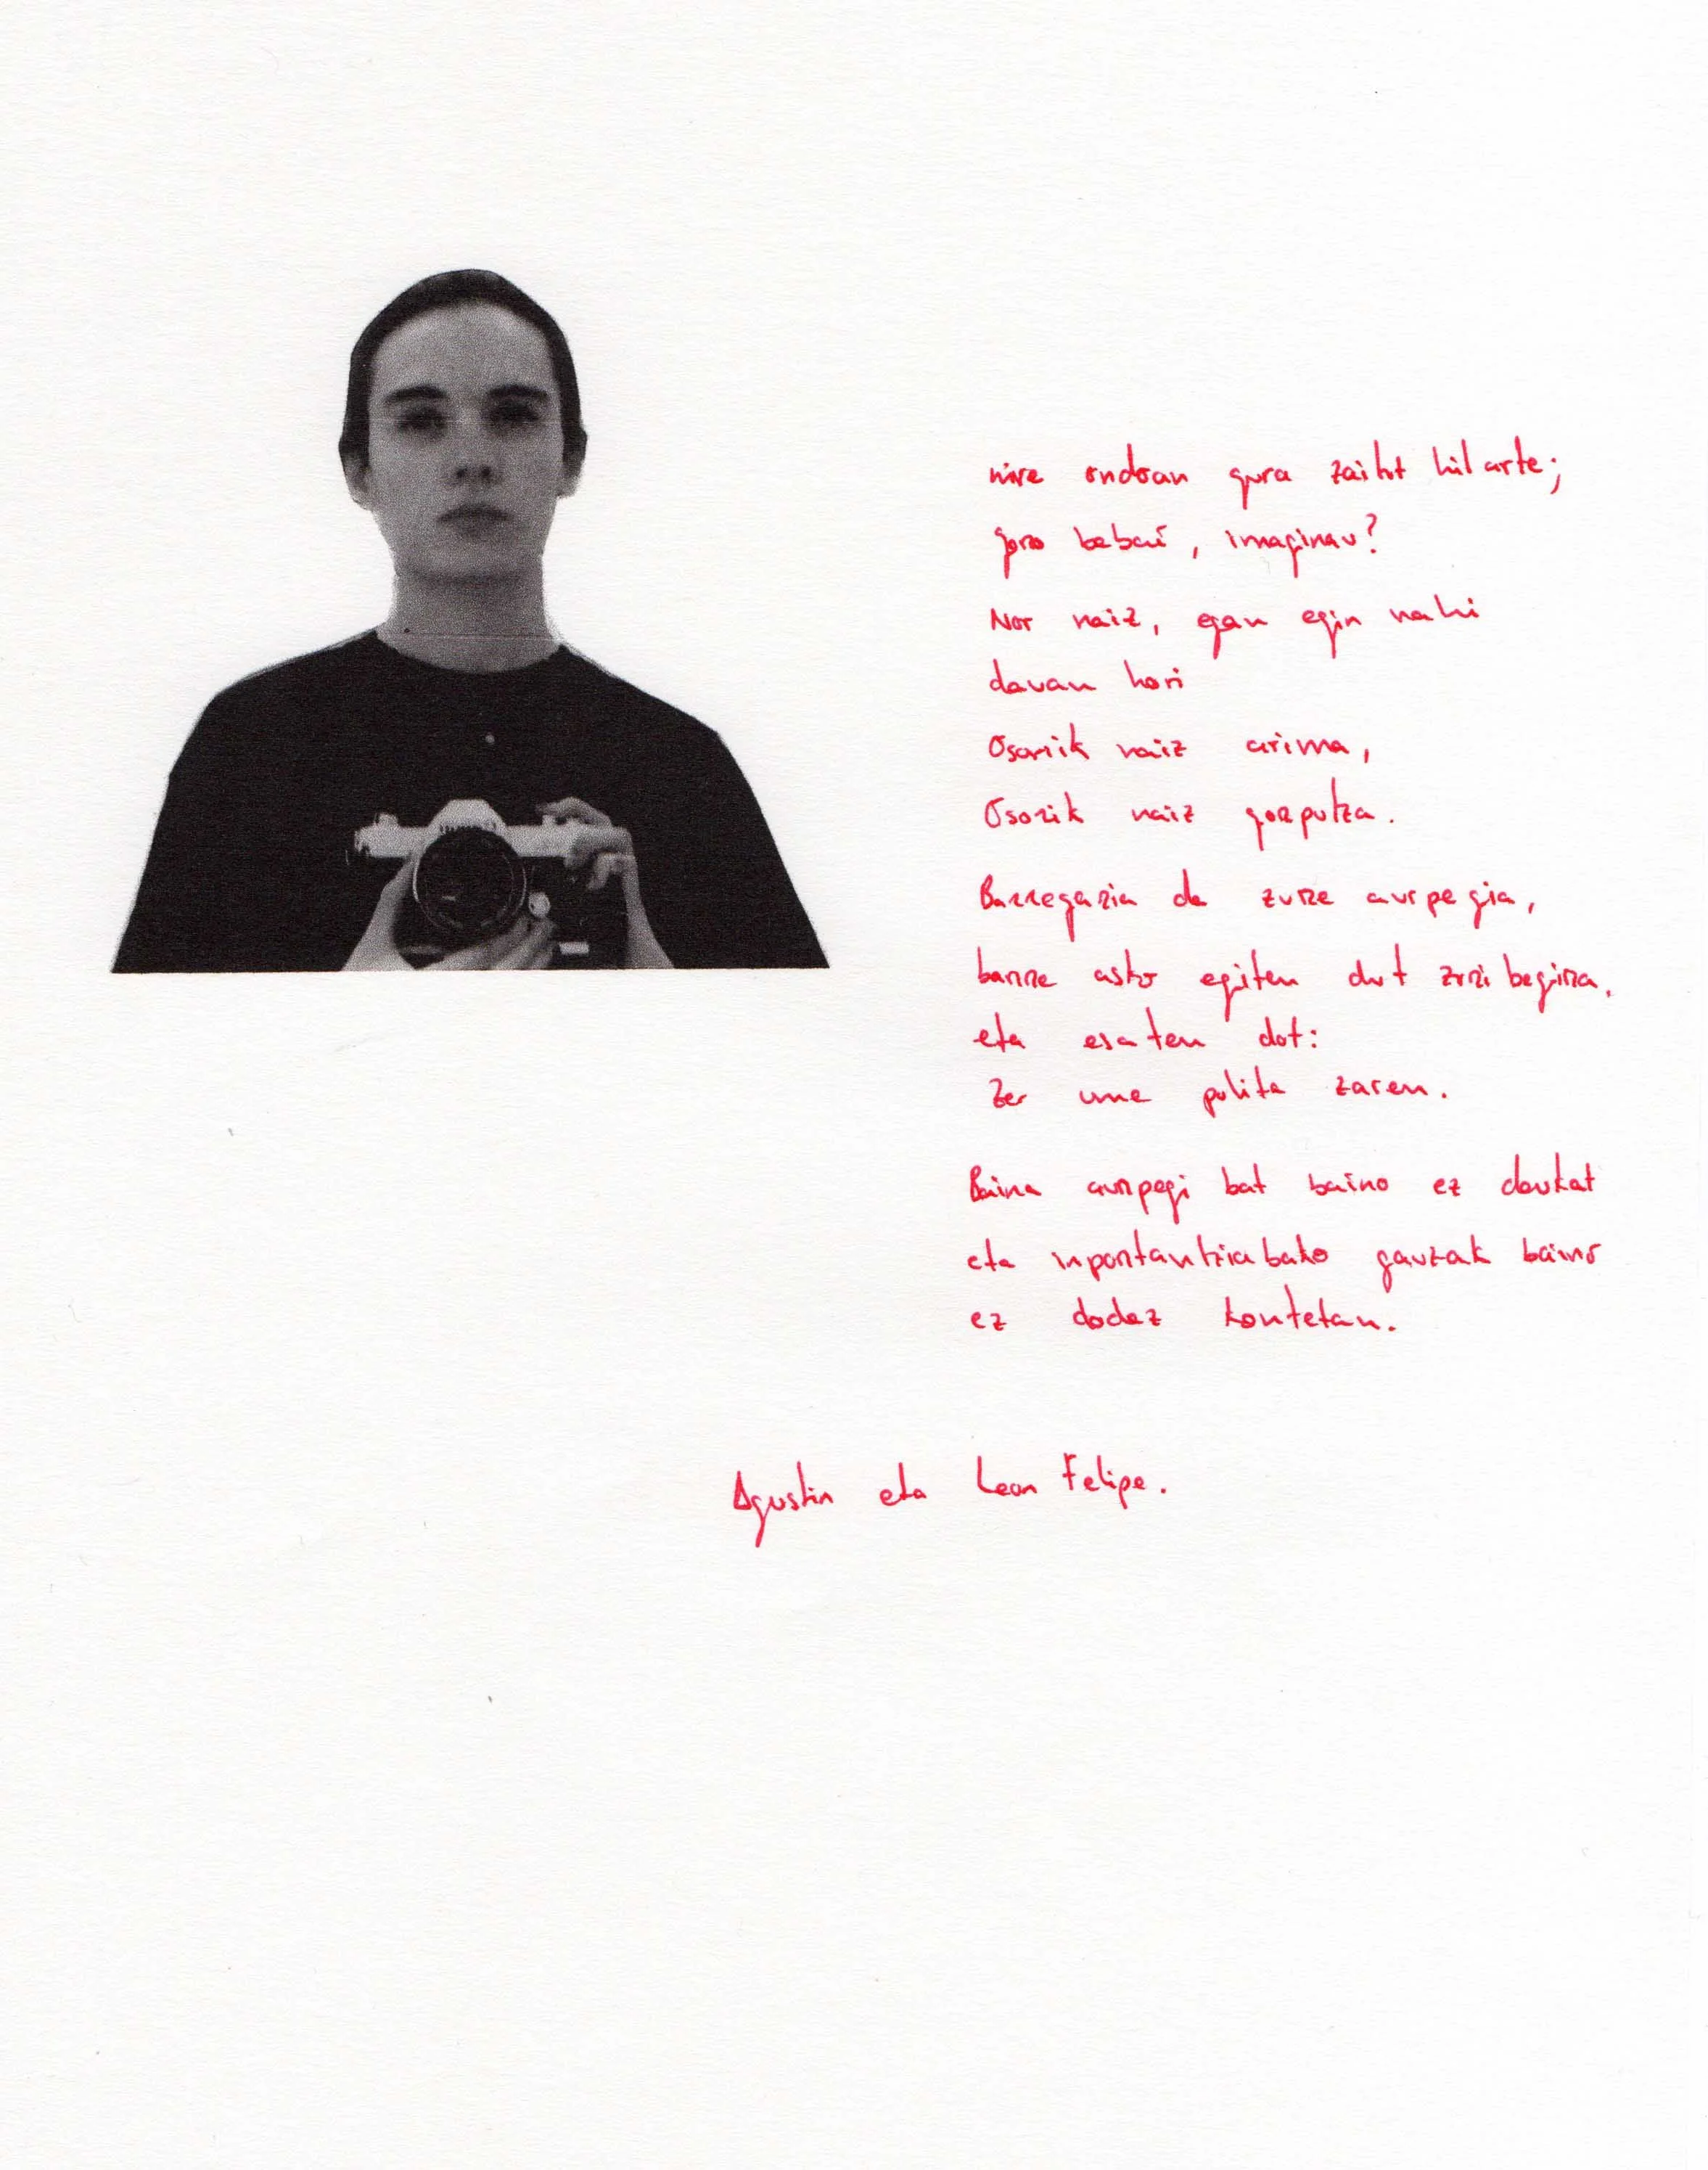 nire ondoan gura zaitut hil arte;
gero bebai, imaginau?
Nor naiz, egan egin nahi
dauan hori
Osorik naiz arima,
Osorik naiz gorputza.
Barregarria da zure aurpegia,
barre asko egiten dut zuri begira,
eta esaten dot:
Zer ume polita zaren.
Baina aurpegi bat baino ez daukat
eta inportantzia bako gauzak baino
ez dodaz kontetan.
Agustin eta Leon Felipe.